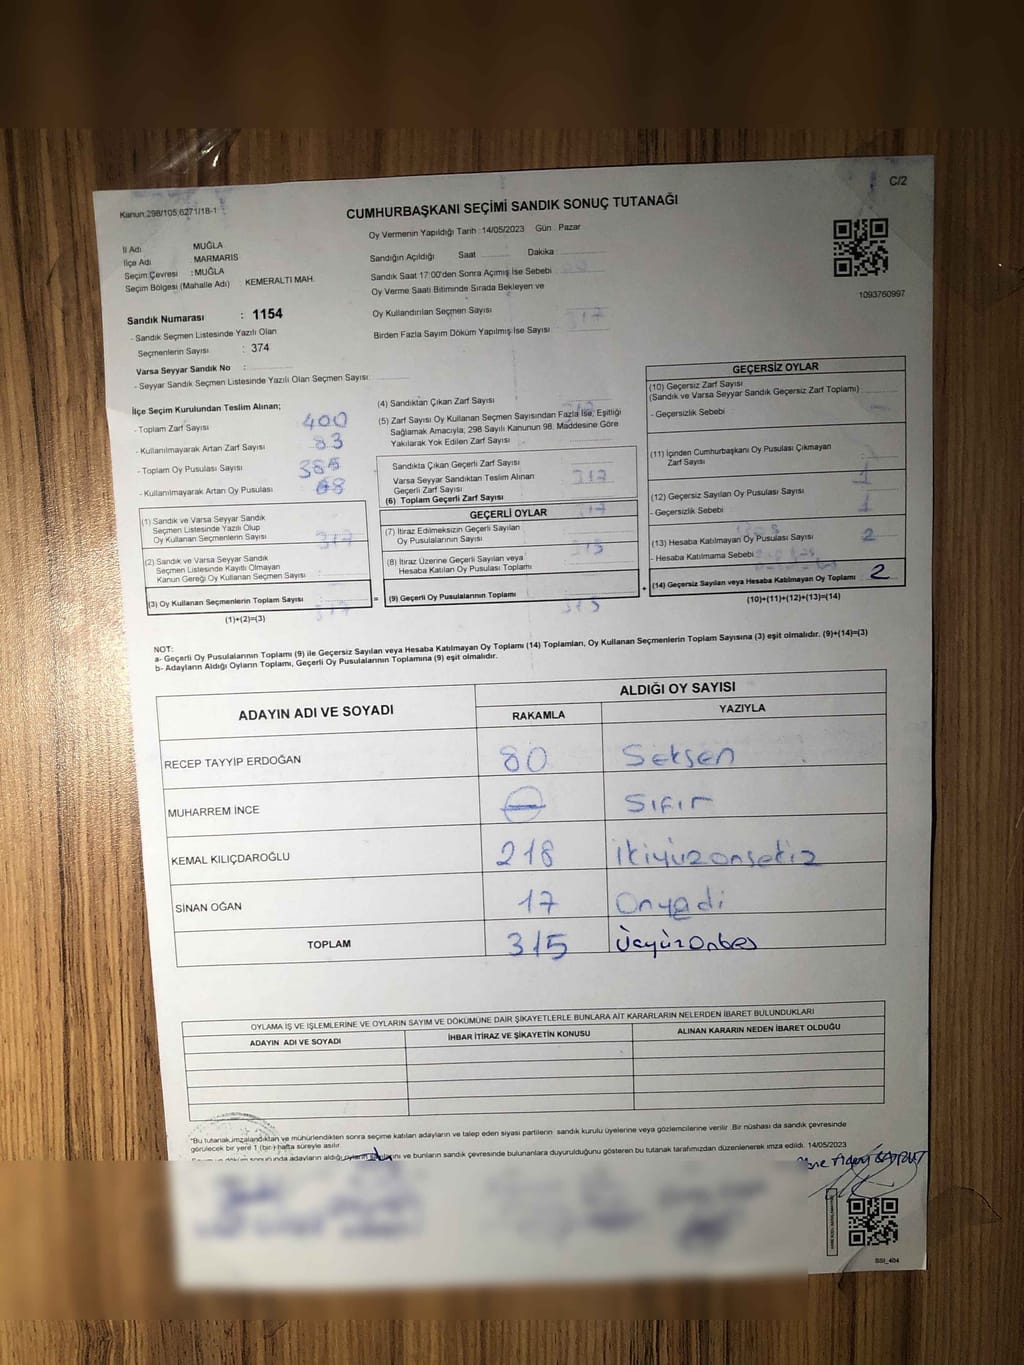 C/2
Kanun:298/105,6271/18-1
CUMHURBAŞKANI SEÇİMİ SANDIK SONUÇ TUTANAĞI
Oy Vermenin Yapıldığı Tarih : 14/05/2023 Gün : Pazar
İl Adı MUĞLA
İlçe Adı MARMARİS
Seçim Çevresi : MUĞLA
Seçim Bölgesi (Mahalle Adı) : KEMERALTI MAH.
Sandığın Açıldığı Saat Dakika
Sandık Saat 17:00'den Sonra Açımış İse Sebebi
Oy Verme Saati Bitiminde Sırada Bekleyen ve
Oy Kullandırılan Seçmen Sayısı
Birden Fazla Sayım Döküm Yapılmış İse Sayısı
1093760997
Sandık Numarası : 1154
- Sandık Seçmen Listesinde Yazılı Olan
Seçmenlerin Sayısı : 374
Varsa Seyyar Sandık No :
- Seyyar Sandık Seçmen Listesinde Yazılı Olan Seçmen Sayısı:
İlçe Seçim Kurulundan Teslim Alınan;
- Toplam Zarf Sayısı 400
- Kullanılmayarak Artan Zarf Sayısı 83
- Toplam Oy Pusulası Sayısı 385
- Kullanılmayarak Artan Oy Pusulası 68
(1) Sandık ve Varsa Seyyar Sandık
Seçmen Listesinde Yazılı Olup
Oy Kullanan Seçmenlerin Sayısı 317
(2) Sandık ve Varsa Seyyar Sandık
Seçmen Listesinde Kayıtlı Olmayan
Kanun Gereği Oy Kullanan Seçmen Sayısı
(3) Oy Kullanan Seçmenlerin Toplam Sayısı 317
(1)+(2)=(3)
(4) Sandıktan Çıkan Zarf Sayısı 317
(5) Zarf Sayısı Oy Kullanan Seçmen Sayısından Fazla İse, Eşitliği
Sağlamak Amacıyla; 298 Sayılı Kanunun 98. Maddesine Göre
Yakılarak Yok Edilen Zarf Sayısı
Sandıkta Çıkan Geçerli Zarf Sayısı
Varsa Seyyar Sandıktan Teslim Alınan 317
Geçerli Zarf Sayısı
(6) Toplam Geçerli Zarf Sayısı
GEÇERLİ OYLAR
(7) İtiraz Edilmeksizin Geçerli Sayılan
Oy Pusulasının Sayısı 315
(8) İtiraz Üzerine Geçerli Sayılan veya
Hesaba Katılan Oy Pusulası Toplamı
= (9) Geçerli Oy Pusulalarının Toplamı 315
GEÇERSİZ OYLAR
(10) Geçersiz Zarf Sayısı
(Sandık ve Varsa Seyyar Sandık Geçersiz Zarf Toplamı)
- Geçersizlik Sebebi
(11) İçinden Cumhurbaşkanı Oy Pusulası Çıkmayan
Zarf Sayısı 1
(12) Geçersiz Sayılan Oy Pusulası Sayısı 1
- Geçersizlik Sebebi
(13) Hesaba Katılmayan Oy Pusulası Sayısı 2
- Hesaba Katılmama Sebebi
+ (14) Geçersiz Sayılan veya Hesaba Katılmayan Oy Toplamı 2
(10)+(11)+(12)+(13)=(14)
NOT:
a- Geçerli Oy Pusulalarının Toplamı (9) ile Geçersiz Sayılan veya Hesaba Katılmayan Oy Toplamı (14) Toplamları, Oy Kullanan Seçmenlerin Toplam Sayısına (3) eşit olmalıdır. (9)+(14)=(3)
b- Adayların Aldığı Oyların Toplamı, Geçerli Oy Pusulalarının Toplamına (9) eşit olmalıdır.
ADAYIN ADI VE SOYADI ALDIĞI OY SAYISI
RAKAMLA YAZIYLA
RECEP TAYYİP ERDOĞAN 80 Seksen
MUHARREM İNCE Sıfır
KEMAL KILIÇDAROĞLU 218 İkiyüzonsekiz
SİNAN OĞAN 17 Onyedi
TOPLAM 315 Üçyüzonbeş
OYLAMA İŞ VE İŞLEMLERİNE VE OYLARIN SAYIM VE DÖKÜMÜNE DAİR ŞİKAYETLERLE BUNLARA AİT KARARLARIN NELERDEN İBARET BULUNDUKLARI
ADAYIN ADI VE SOYADI İHBAR İTİRAZ VE ŞİKAYETİN KONUSU ALINAN KARARIN NEDEN İBARET OLDUĞU
*Bu tutanak,imzalandıktan ve mühürlendikten sonra seçime katılan adayların ve talep eden siyasi partilerin sandık kurulu üyelerine veya gözlemcilerine verilir. Bir nüshası da sandık çevresinde
görülecek bir yere 1 (bir) hafta süreyle asılır.
adayların aldığı oyların ve bunların sandık çevresinde bulunanlara duyurulduğunu gösteren bu tutanak tarafımızdan düzenlenerek imza edildi. 14/05/2023
SSİ_404